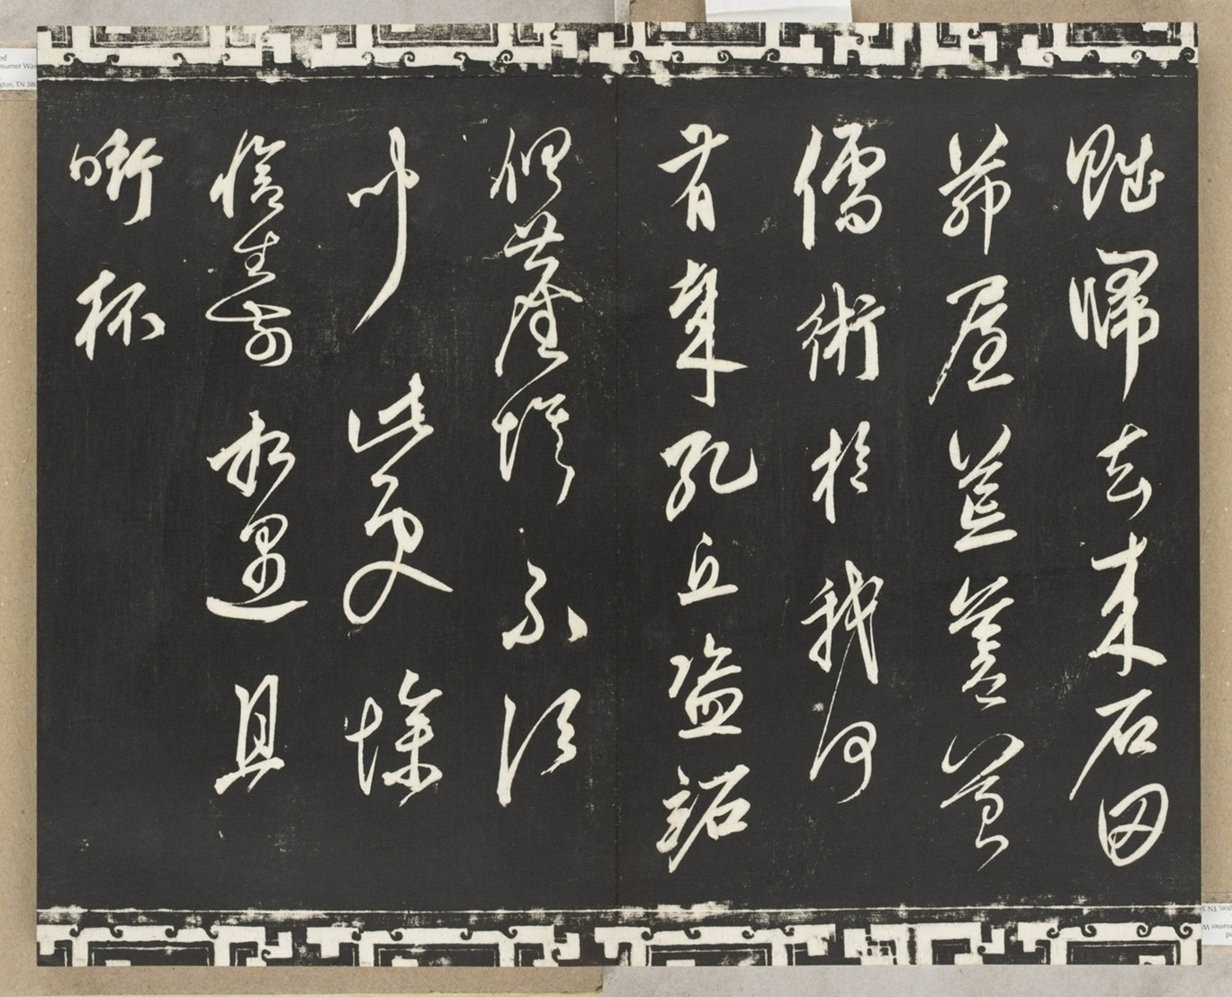 賦歸去來石田
茅屋荒蒼苔
儒術於我何
有哉孔丘盜跖
俱塵埃不須
聞此慘
愴生前相遇且
啣杯